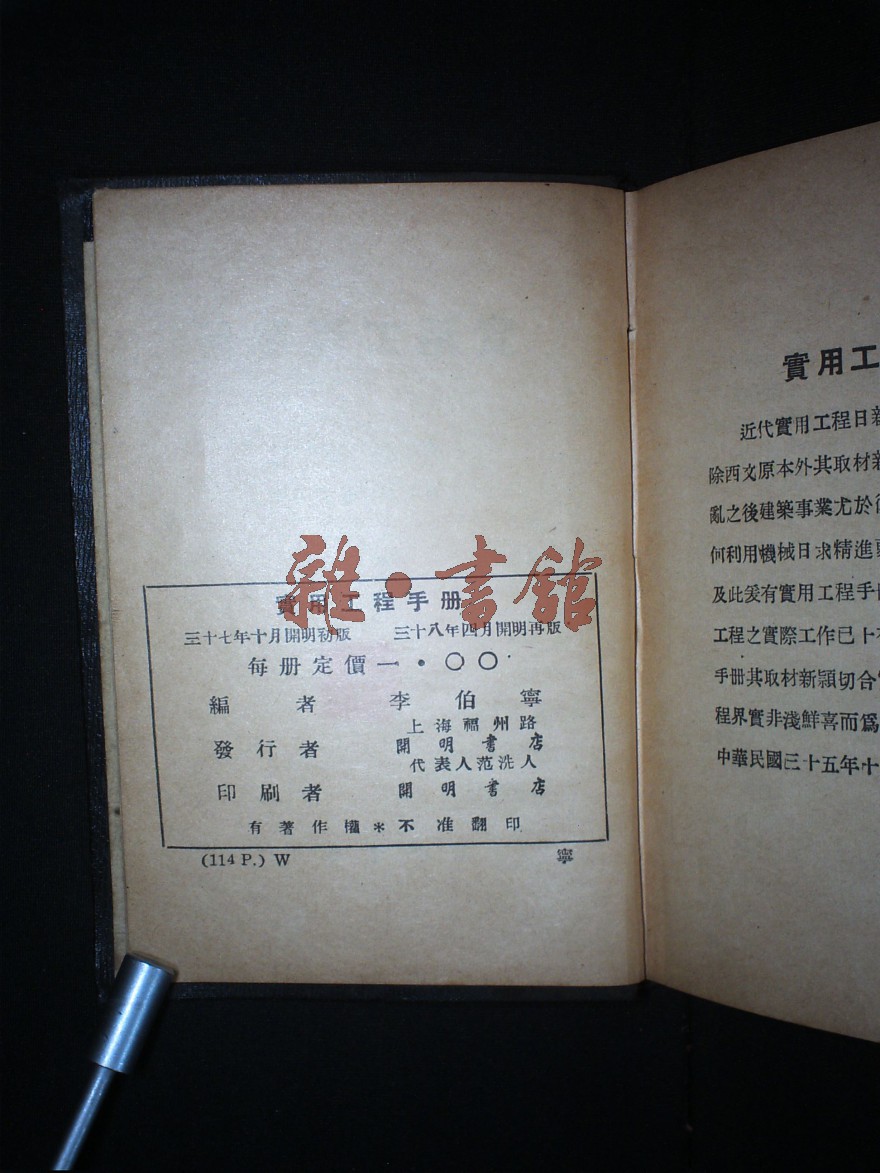 實用工程手册
三十七年十月開明初版 三十八年四月開明再版
每册定價一·〇〇
編者 李伯寧
上海福州路
發行者 開明書店
代表人范洗人
印刷者 開明書店
有著作權＊不准翻印
(114 P.) W 寧
雜·書館
實用工
近代實用工程日新
除西文原本外其取材新
亂之後建築事業尤於
何利用機械日求精進
及此爰有實用工程手
工程之實際工作已十
手册其取材新穎切合
程界實非淺鮮喜而爲
中華民國三十五年十